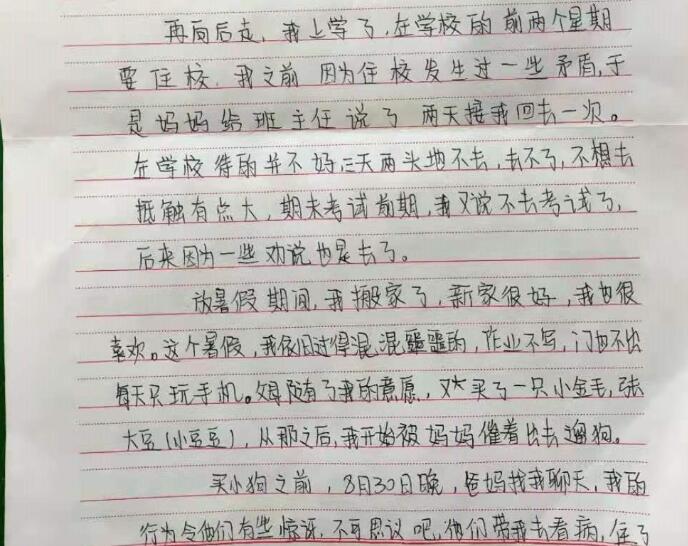 再向后走，我上学了，在学校的前两个星期
要住校，我之前因为住校发生过一些矛盾，于
是妈妈给班主任说了两天接我回去一次。
在学校待的并不好三天两头地不去，去不了，不想去
抵触有点大，期末考试前期，我又说不去考试了，
后来因为一些劝说也是去了。
放暑假期间，我搬家了，新家很好，我也很
喜欢。这个暑假，我依旧过得混混噩噩的，作业不写，门也不出
每天只玩手机。父母随有了我的意愿，又买了一只小金毛，张
大豆（小豆豆），从那之后，我开始被妈妈催着出去遛狗。
买小狗之前，8月30日晚，爸妈找我聊天，我的
行为令他们有些惊讶，不可思议吧，他们带我去看病，住了